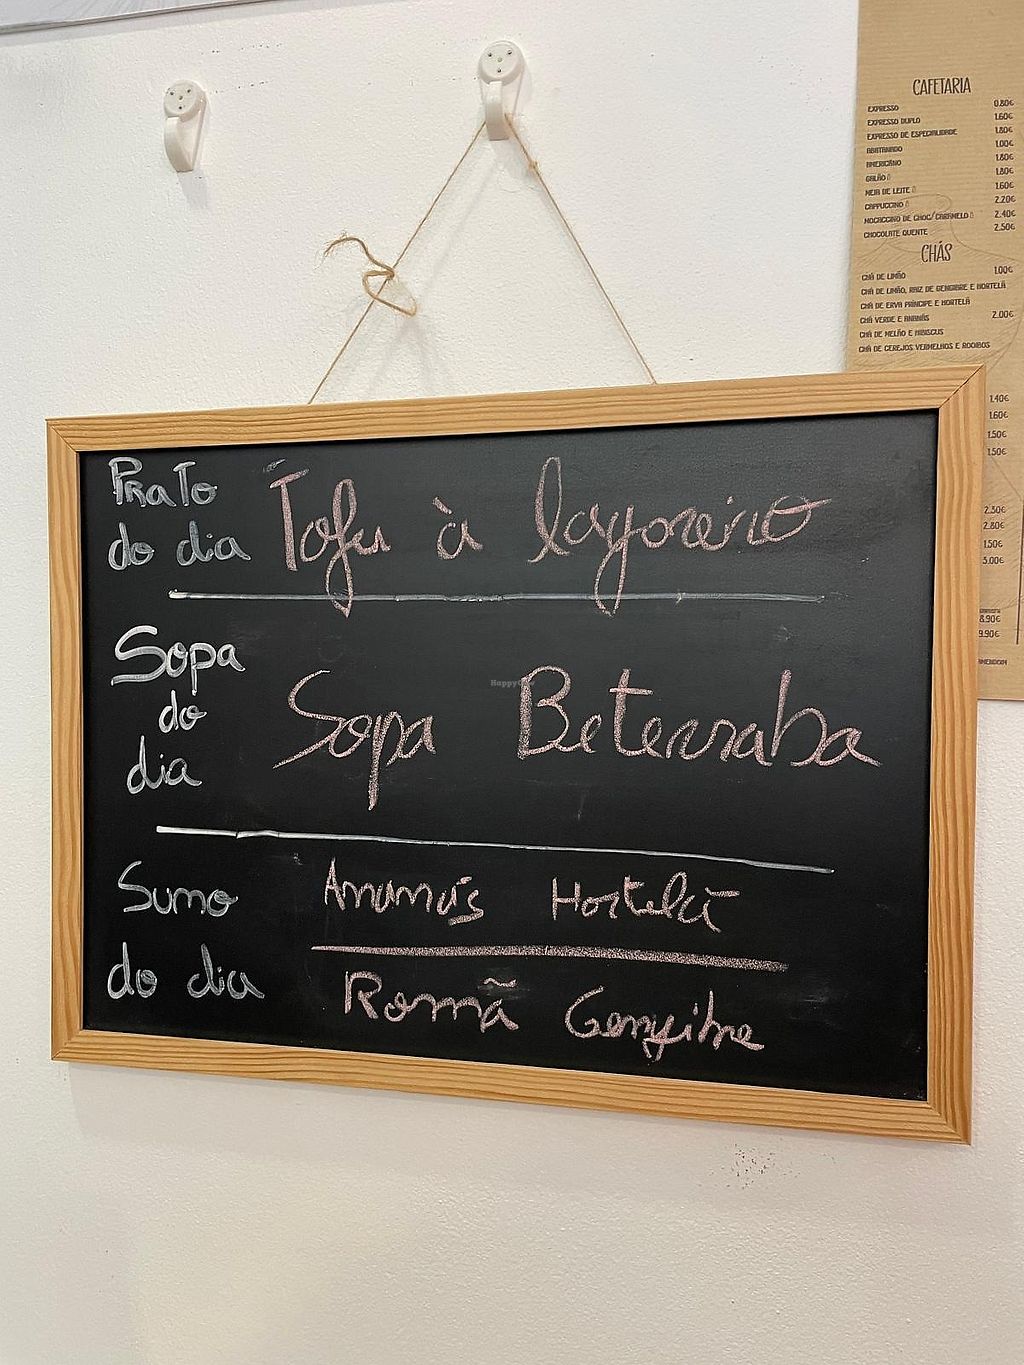 CAFETARIA
EXPRESSO 0.80€
EXPRESSO DUPLO 1.60€
EXPRESSO DE ESPECIALIDADE 1.80€
ABATANADO 1.00€
AMERICANO 1.80€
GALÃO 1.80€
MEIA DE LEITE 1.60€
CAPPUCCINO 2.20€
MOCACCINO DE CHOC/CARAMELO 2.40€
CHOCOLATE QUENTE 2.50€
CHÁS
CHÁ DE LIMÃO 1.00€
CHÁ DE LIMÃO, RAIZ DE GENGIBRE E HORTELÃ
CHÁ DE ERVA PRÍNCIPE E HORTELÃ
CHÁ VERDE E ANANÁS 2.00€
CHÁ DE MELÃO E HIBISCUS
CHÁ DE CEREJOS VERMELHOS E ROOIBOS
1.40€
1.60€
1.50€
1.50€
2.30€
2.80€
1.50€
3.00€
8.90€
9.90€
Prato
do dia
Tofu à lagoreiro
Sopa
do
dia
Sopa Beterraba
Sumo
do dia
Ananás Hortelã
Romã Gengibre